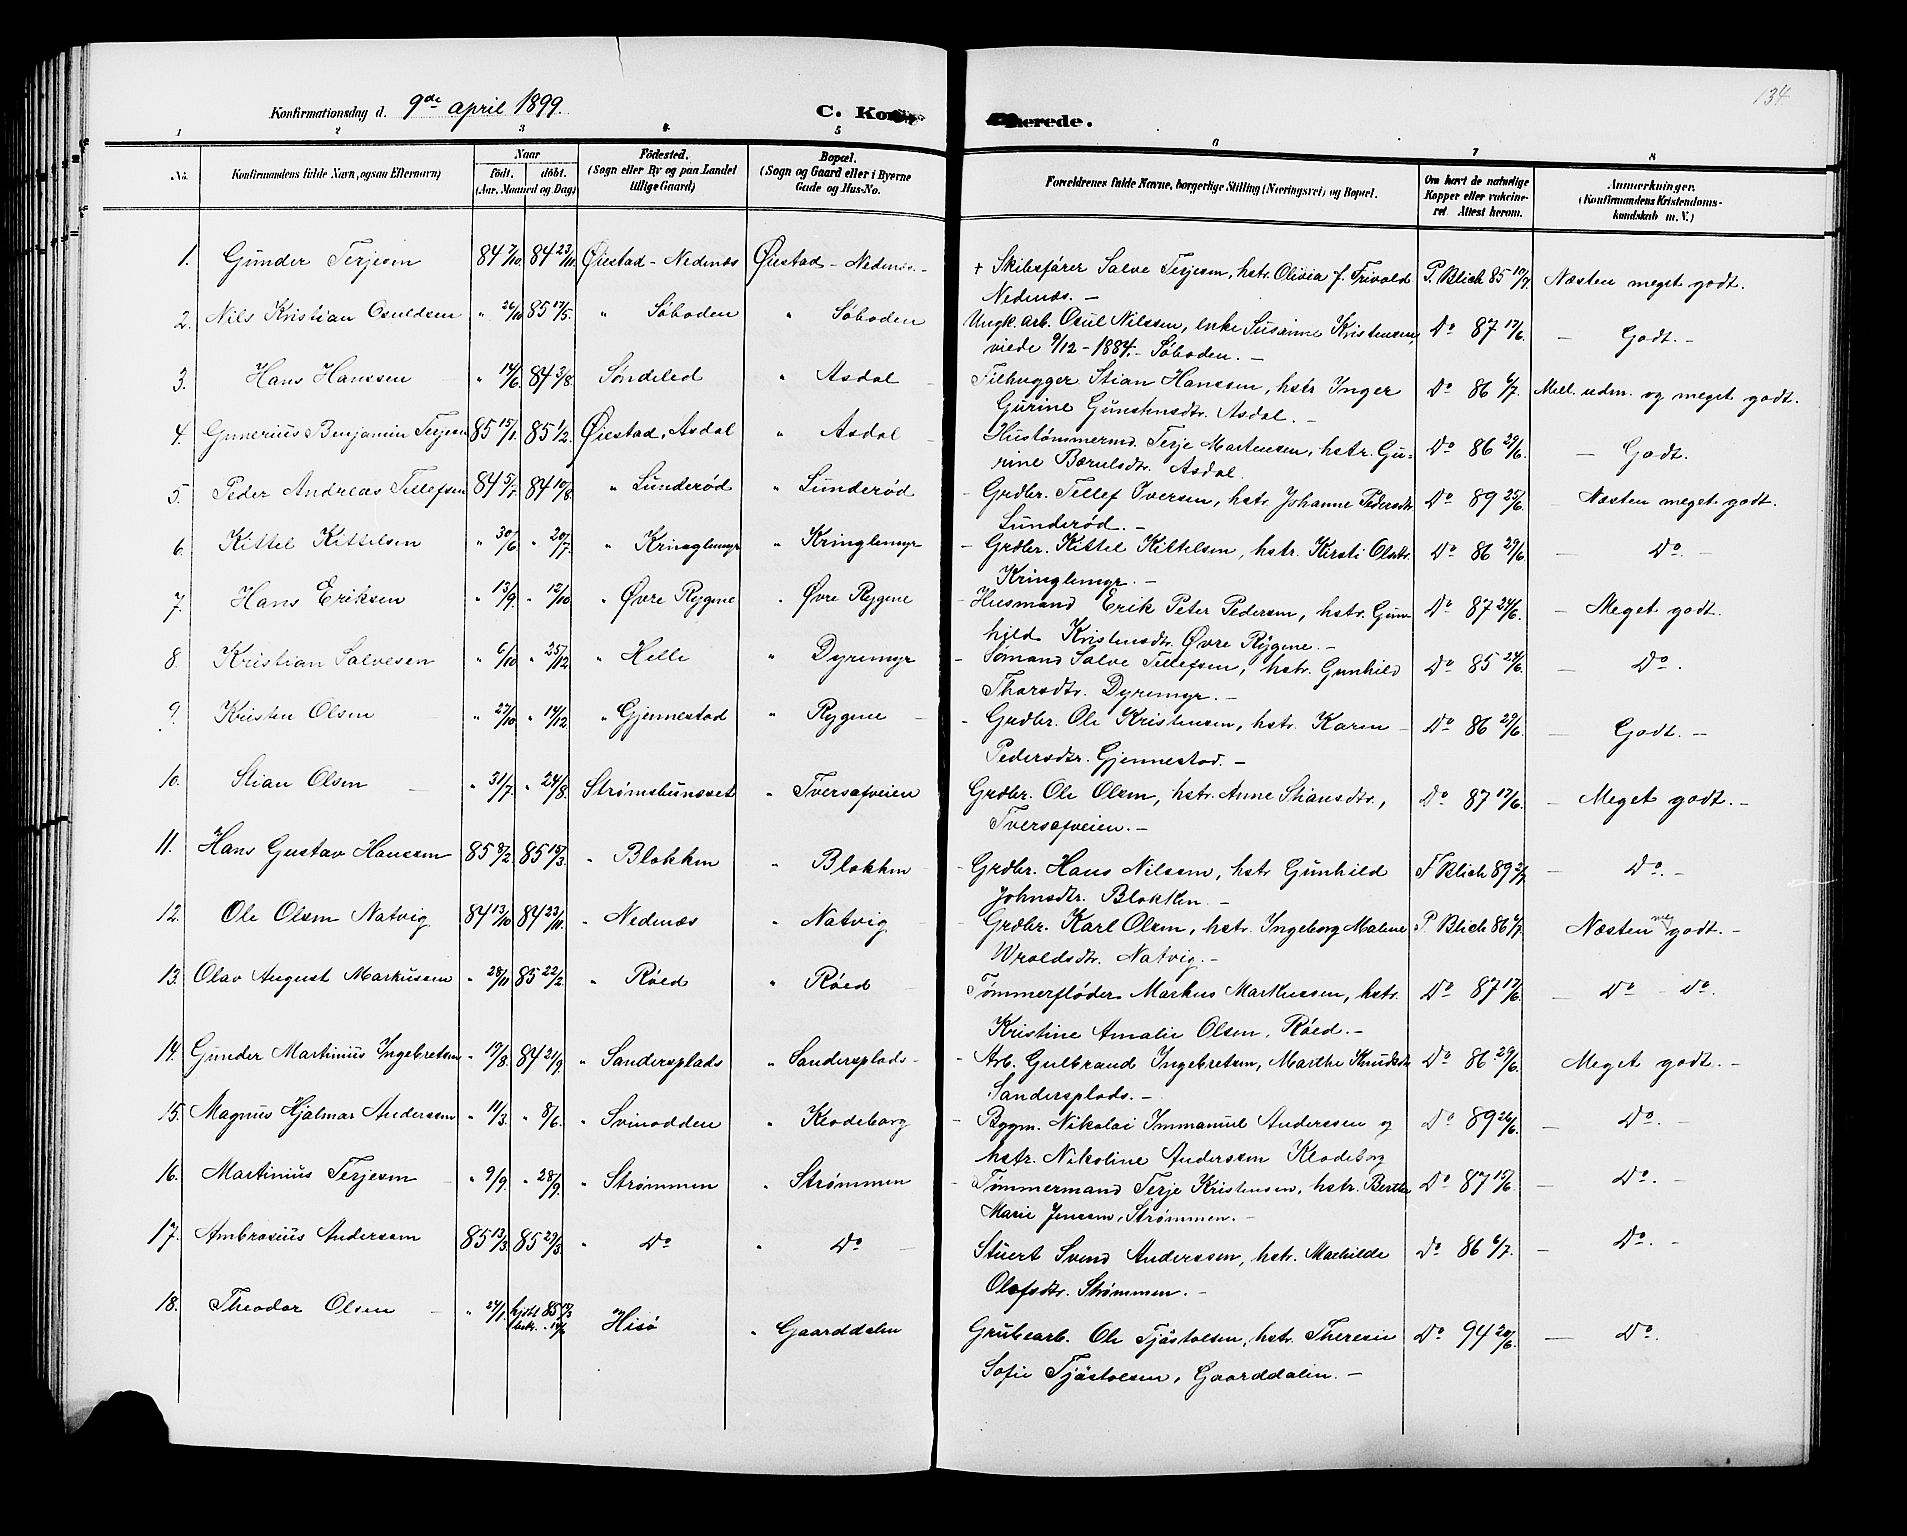 134
Konfirmationsdag d. 9de april 1899.
C. Kon
erede.
1 2 3 4 5 6 7 8
No. Konfirmandens fulde Navn, ogsaa Efternavn) Naar født. døbt. (Aar, Maaned og Dag) Födested. (Sogn eller By og paa Landet tillige Gaard) Bopæl. (Sogn og Gaard eller i Byerne Gade og Hus-No.
Forældrenes fulde Navne, borgerlige Stilling (Næringsvei) og Bopæl. Om havt de naturlige Kopper eller vakcineret Attest herom. Anmærkninger. (Konfirmandens Kristendomskundskab m. V.)
1. Gunder Terjesen 84 7/10 84 23/11 Øiestad - Nedenæs Øiestad - Nedenæs - + Skibsfører Salve Terjesen, hstr. Olivia f. Frivold P. Blich 85 10/7 Næsten meget godt.
Nedenæs. -
2. Nils Kristian Osuldsen " 26/10 85 17/5. " Søboden " Søboden Ungk. arb. Osul Nilssen, enke Susanne Kristensen, Do 87 17/6. - Godt. -
viede 9/12 - 1884. - Søboden. -
3. Hans Hanssen " 14/6. 84 3/8. Søndeled " Asdal - Tilhugger Stian Hanssen, hstr Inger Do 86 6/7. Mell. udm. og meget godt.
Gurine Gunstensdtr. Asdal. -
4. Gunerius Benjamin Terjesen 85 15/1. 85 1/2. Øiestad, Asdal " Asdal - Hustømmermd. Terje Martensen, hstr. Gu- Do 86 29/6. - Godt.
rine Bærulsdtr. Asdal.
5. Peder Andreas Tellefsen 84 5/7. 84 10/8. " Lunderød " Lunderød - Grdbr. Tellef Iversen, hstr. Johanne Pedersdtr Do 89 25/6. - Næsten meget godt.
Lunderød. -
6. Kittel Kittelsen " 30/6 " 20/7. " Kringlemyr " Kringlemyr - Grdbr. Kittel Kittelsen, hstr. Kirsti Olsdtr. Do 86 29/6. - Do. -
Kringlemyr. -
7. Hans Eriksen " 13/9. " 12/10 " Øvre Rygene " Øvre Rygene - Husmand Erik Peter Pedersen, hstr. Gun- Do 87 24/6. - Meget godt.
hild Kristensdtr. Øvre Rygene. -
8. Kristian Salvesen " 6/10 " 25/12 " Helle " Dyremyr - Sømand Salve Tellefsen, hstr. Gunhild Do 85 24/6. - Do.
Thorsdtr. Dyremyr. -
9. Kristen Olsen " 27/10 " 14/12. " Gjennestad " Rygene - - Grdbr. Ole Kristensen, hstr. Karen - Do 86 29/6. - Godt. -
Pedersdtr. Gjennestad. -
10. Stian Olsen - " 31/7. " 24/8. Strømsbunsset " Tversafveien Grdbr. Ole Olsen, hstr. Anne Stiansdtr., Do 87 17/6. - Meget godt. -
Tversafveien. -
11. Hans Gustav Hanssen 85 8/2 85 15/3. " Blokken " Blokken - Grdbr. Hans Nilsen, hstr Gunhild F Blich 89 2/7 - Do. -
Johnsdtr. Blokken. -
12. Ole Olsen Natvig 84 13/10 84 23/11. " Nedenæs " Natvig - Grdbr. Karl Olsen, hstr. Ingeborg Malene P Blich 86 6/7. Næsten meg godt. -
Wroldsdtr. Natvig. -
13. Olav August Markussen " 28/11 85 22/2. " Røed " Røed - Tømmerfløder Markus Markussen, hstr. Do 87 17/6. - Do - Do.
Kristine Amalie Olsen, Røed. -
14. Gunder Martinius Ingebretsen " 17/8. 84 21/9 " Sandersplads " Sandersplads - - Arb. Gulbrand Ingebretsen, Marthe Knudsdtr Do 86. 29/6. Meget godt. -
Sandersplads. -
15. Magnus Hjalmar Anderssen " 11/3. " 8/6. " Svinodden " Klodeborg - Bygm. Nikolai Immanuel Anderssen og Do 89 26/6. - Do. -
hstr. Nikoline Anderssen Klodeborg
16. Martinius Terjesen - " 9/9. " 28/9. " Strømmen " Strømmen - Tømmermand Terje Kristensen, hstr. Berthe Do 87 15/6 - Do. -
Marie Jenssen, Strømmen. -
17. Ambrosius Anderssen 85 13/3. 85 29/3. " Do " Do - Stuert Svend Anderssen, hstr. Mathilde Do 86 6/7. - Do. -
Olafsdtr. Strømmen. -
18. Theodor Olsen - " 24/1. hjdbt 85 Hisø " Gaarddalen Grubearb. Ole Tjøstolsen, hstr. Theresie Do 94 20/6. - Do.
Sofie Tjøstolsen, Gaarddalen. -